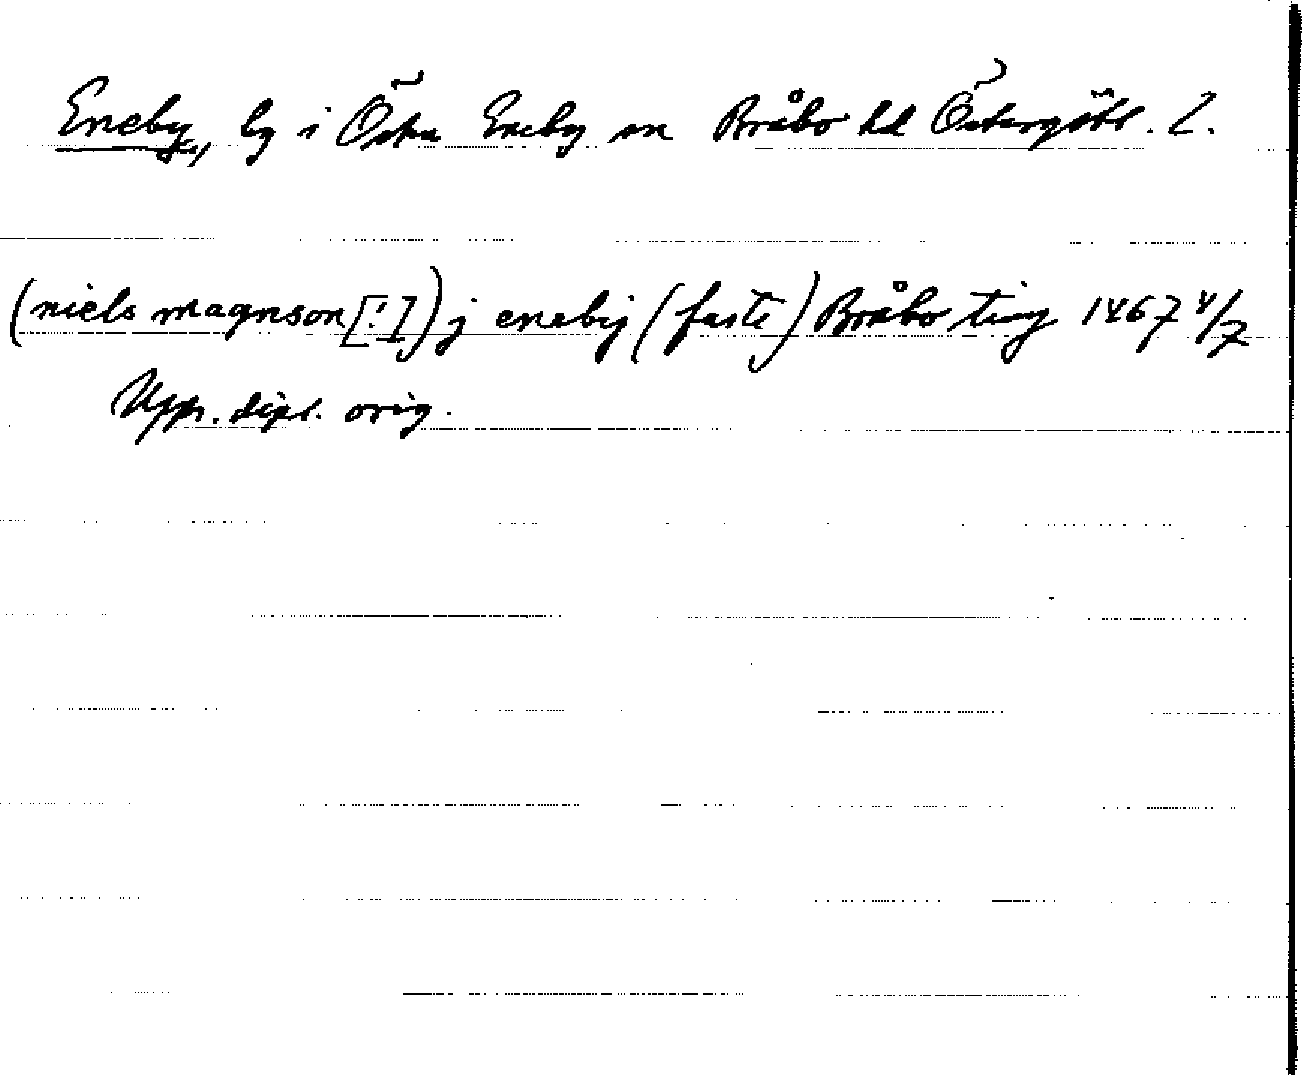 Eneby, by i Östra Eneby sn Bråbo hd Östergötl. l.
(niels magnson [!]) j enebij (faste) Bråbo ting 1467 4/7
Upps. dipl. orig.